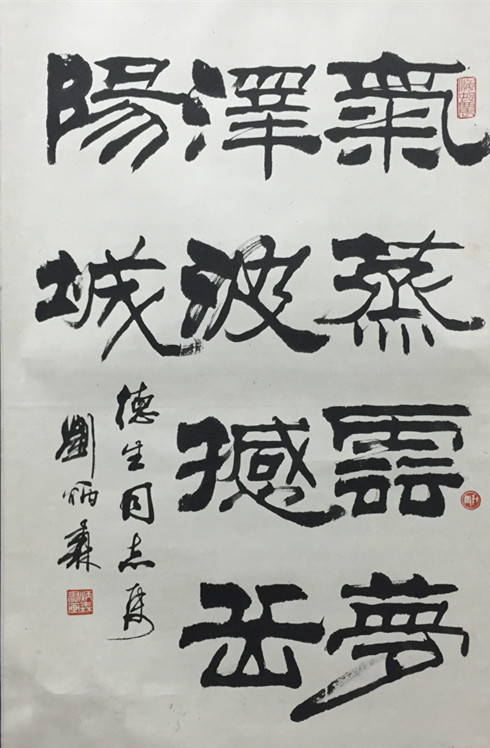 氣蒸雲夢
澤波撼岳
陽城
德生同志屬
劉炳森